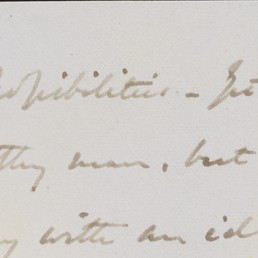 possibilities - Yet
thy man, but
y with an id